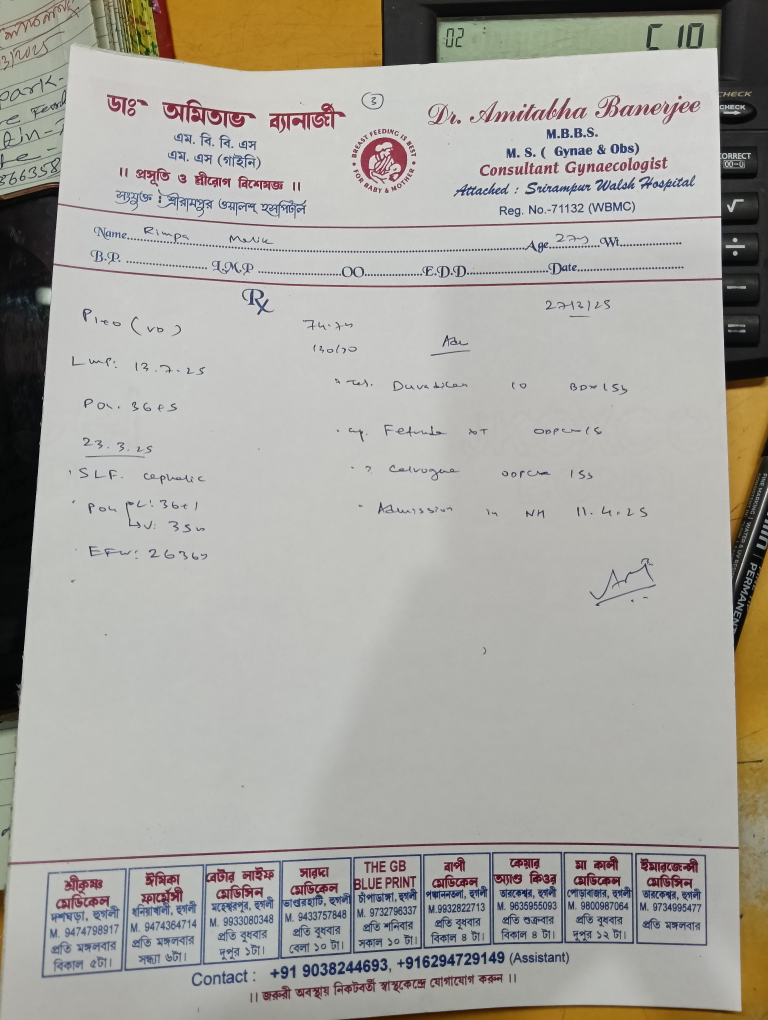 02 C 10
CHECK
CHECK
CORRECT
3
ডাঃ অমিতাভ ব্যানার্জী
এম. বি. বি. এস
এম. এস (গাইনি)
।। প্রসূতি ও স্ত্রীরোগ বিশেষজ্ঞ ।।
সংযুক্ত : শ্রীরামপুর ওয়ালশ হসপিটাল
BREAST FEEDING IS BEST
FOR BABY & MOTHER
Dr. Amitabha Banerjee
M.B.B.S.
M. S. ( Gynae & Obs)
Consultant Gynaecologist
Attached : Srirampur Walsh Hospital
Reg. No.-71132 (WBMC)
Name Rimpa Malik Age 27y Wt
B.P. L.M.P OO E.D.D. Date
Rx
27/3/25
P1+0
74.7
130/70
Adv
LMP: 13.7.25
Duvadilan 10
POG. 36+5
23.3.25
SLF. cephalic
POG
36+1
35w
Admission in NH 11.4.25
EFW:
শ্রীকৃষ্ণ মেডিকেল
দশঘড়া, হুগলী
M. 9474798917
প্রতি মঙ্গলবার
বিকাল ৫টা।
ঈমিকা ফার্মেসী
ধনিয়াখালী, হুগলী
M. 9474364714
প্রতি মঙ্গলবার
সন্ধ্যা ৬টা।
বেটার লাইফ মেডিসিন
মহেশ্বরপুর, হুগলী
M. 9933080348
প্রতি বুধবার
দুপুর ১টা।
সারদা মেডিকেল
ভাণ্ডারহাটি, হুগলী
M. 9433757848
প্রতি বুধবার
বেলা ১০ টা।
THE GB BLUE PRINT
চাঁপাডাঙ্গা, হুগলী
M. 9732796337
প্রতি শনিবার
সকাল ১০ টা।
বাপী মেডিকেল
পঞ্চাননতলা, হুগলী
M. 9932822713
প্রতি বুধবার
বিকাল ৪ টা।
কেয়ার অ্যান্ড কিওর
তারকেশ্বর, হুগলী
M. 9635955093
প্রতি শুক্রবার
বিকাল ৪ টা।
মা কালী মেডিকেল
পোড়াবাজার, হুগলী
M. 9800987064
প্রতি বুধবার
দুপুর ১২ টা।
ইমারজেন্সী মেডিসিন
তারকেশ্বর, হুগলী
M. 9734995477
প্রতি মঙ্গলবার
Contact : +91 9038244693, +916294729149 (Assistant)
।। জরুরী অবস্থায় নিকটবর্তী স্বাস্থ্যকেন্দ্রে যোগাযোগ করুন ।।
PERMANENT